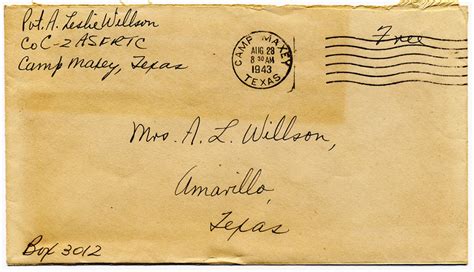 Pvt. A. Leslie Willson
Co C-2 ASFRTC
Camp Maxey, Texas
CAMP MAXEY
AUG 28
8 30 AM
1943
TEXAS
Free
Mrs. A. L. Willson,
Amarillo,
Texas
Box 3012